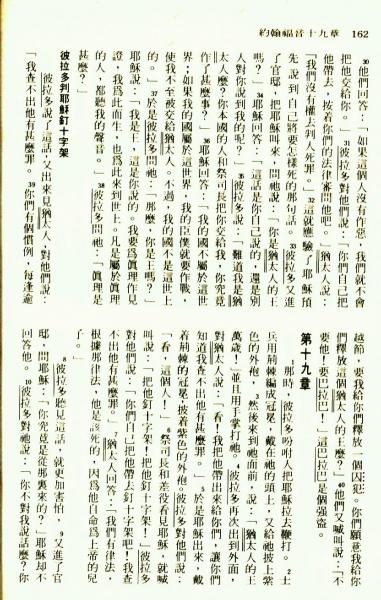 約翰福音十九章 162
30他們回答：「如果這個人沒有作惡，我們就不會
把他交給你。」31彼拉多對他們說：「你們自己把
他帶去，按着你們的法律審問他吧。」猶太人說：
「我們沒有權去判人死罪。」32這就應驗了耶穌預
先說到自己將要怎樣死的那句話。33彼拉多又進
了官邸，把耶穌叫來，問祂說：「你是猶太人的王
嗎？」34耶穌回答：「這話是你自己說的，還是別
人對你說到我的呢？」35彼拉多說：「難道我是猶
太人麼？你本國的人和祭司長把你交給我，你究竟
作了甚麼事？」36耶穌回答：「我的國不屬於這世
界；如果我的國屬於這世界，我的臣僕就要作戰，
使我不至被交給猶太人。不過，我的國不是這世上
的。」37於是彼拉多問祂：「那麼，你是王嗎？」
耶穌回答：「我是王，這是你說的。我要為眞理作見
證，我為此而生，也為此來到世上。凡是屬於眞理
的人，都聽我的聲音。」38彼拉多問祂：「眞理是
甚麼？」
彼拉多判耶穌釘十字架
彼拉多說了這話，又出來見猶太人，對他們說：
「我查不出他有甚麼罪。39你們有個慣例，每逢逾
越節，要我給你們釋放一個囚犯。你們願意我給你
們釋放這個猶太人的王麼？」40他們又喊叫說：「不
要他！要巴拉巴！」這巴拉巴是個強盜。
第十九章
1那時，彼拉多吩咐人把耶穌拉去鞭打。2士
兵用荆棘編成冠冕，戴在祂的頭上，又給祂披上紫
色的外袍，3然後來到祂面前，說：「猶太人的王
萬歲！」並且用手掌打祂。4彼拉多再次出到外面，
對猶太人說：「看！我把他帶出來給你們，讓你們
知道我查不出他有甚麼罪。」5於是耶穌出來，戴
着荆棘的冠冕，披着紫色的外袍。彼拉多對他們說：
「看，這個人！」6祭司長和差役看見耶穌，就喊
叫說：「把他釘十字架！把他釘十字架！」彼拉多
對他們說：「你們自己把他帶去釘十字架吧！我查
不出他有甚麼罪。」7猶太人回答：「我們有律法，
根據那律法，他是該死的，因爲他自命爲上帝的兒
子。」
8彼拉多聽見這話，就更加害怕，9又進了官
邸，問耶穌：「你究竟是從那裏來的？」耶穌却不
回答他。10彼拉多對祂說：「你不對我說話麼？你